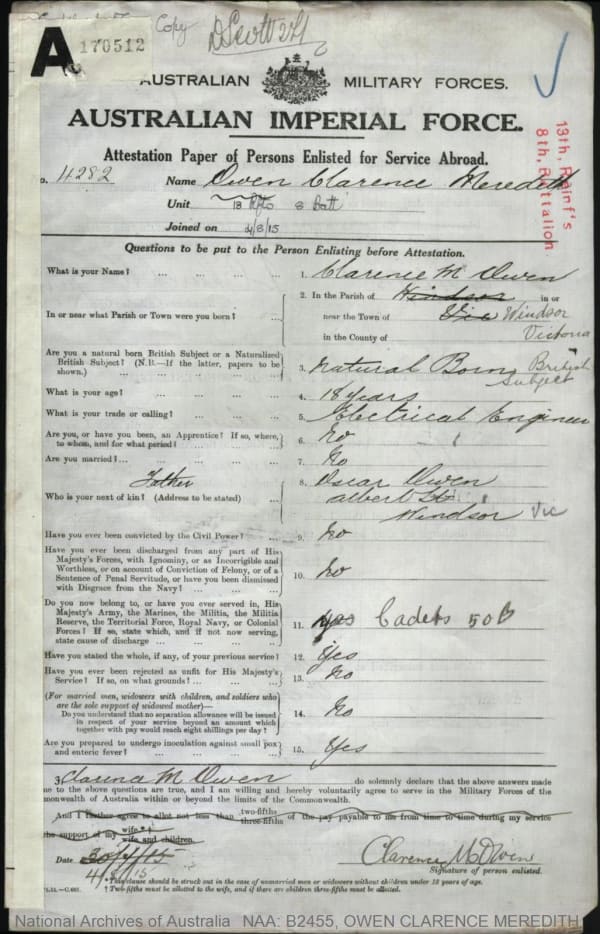 Copy
D Scott Lt
A
170512
AUSTRALIAN MILITARY FORCES.
AUSTRALIAN IMPERIAL FORCE.
Attestation Paper of Persons Enlisted for Service Abroad.
o. 4282 Name Owen Clarence Meredith
Unit 13 Rfts 8 Batt
Joined on 4/8/15
13th, Reinf's
8th, Battalion
Questions to be put to the Person Enlisting before Attestation.
What is your Name? ... ... ... ... 1. Clarence M Owen
In or near what Parish or Town were you born? ... 2. In the Parish of Windsor in or
near the Town of Vic Windsor
in the County of Victoria
Are you a natural born British Subject or a Naturalized
British Subject? (N.B.—If the latter, papers to be
shown.) ... ... ... ... 3. Natural Born British
Subject
What is your age? ... ... ... ... 4. 18 years
What is your trade or calling? ... ... ... 5. Electrical Engineer
Are you, or have you been, an Apprentice? If so, where,
to whom, and for what period? ... ... 6. No
Are you married?... ... ... ... 7. No
Father
Who is your next of kin? (Address to be stated) ... 8. Oscar Owen
Albert St
Windsor Vic
Have you ever been convicted by the Civil Power? ... 9. No
Have you ever been discharged from any part of His
Majesty's Forces, with Ignominy, or as Incorrigible and
Worthless, or on account of Conviction of Felony, or of a
Sentence of Penal Servitude, or have you been dismissed
with Disgrace from the Navy? ... ... 10. No
Do you now belong to, or have you ever served in, His
Majesty's Army, the Marines, the Militia, the Militia
Reserve, the Territorial Force, Royal Navy, or Colonial
Forces? If so, state which, and if not now serving,
state cause of discharge ... ... ... 11. yes Cadets 50B
Have you stated the whole, if any, of your previous service? 12. yes
Have you ever been rejected as unfit for His Majesty's
Service? If so, on what grounds? ... ... 13. No
(For married men, widowers with children, and soldiers who
are the sole support of widowed mother)—
Do you understand that no separation allowance will be issued
in respect of your service beyond an amount which
together with pay would reach eight shillings per day? 14. No
Are you prepared to undergo inoculation against small pox
and enteric fever? ... ... ... 15. Yes
Clarence M Owen do solemnly declare that the above answers made
me to the above questions are true, and I am willing and hereby voluntarily agree to serve in the Military Forces of the
monwealth of Australia within or beyond the limits of the Commonwealth.
And I further agree to allot not less than two-fifths three-fifths of the pay payable to me from time to time during my service
the support of my wife*† wife and children.
Date 30/7/15
4/8/15
Clarence M Owen
Signature of person enlisted.
* This clause should be struck out in the case of unmarried men or widowers without children under 18 years of age.
† Two-fifths must be allotted to the wife, and if there are children three-fifths must be allotted.
National Archives of Australia NAA: B2455, OWEN CLARENCE MEREDITH